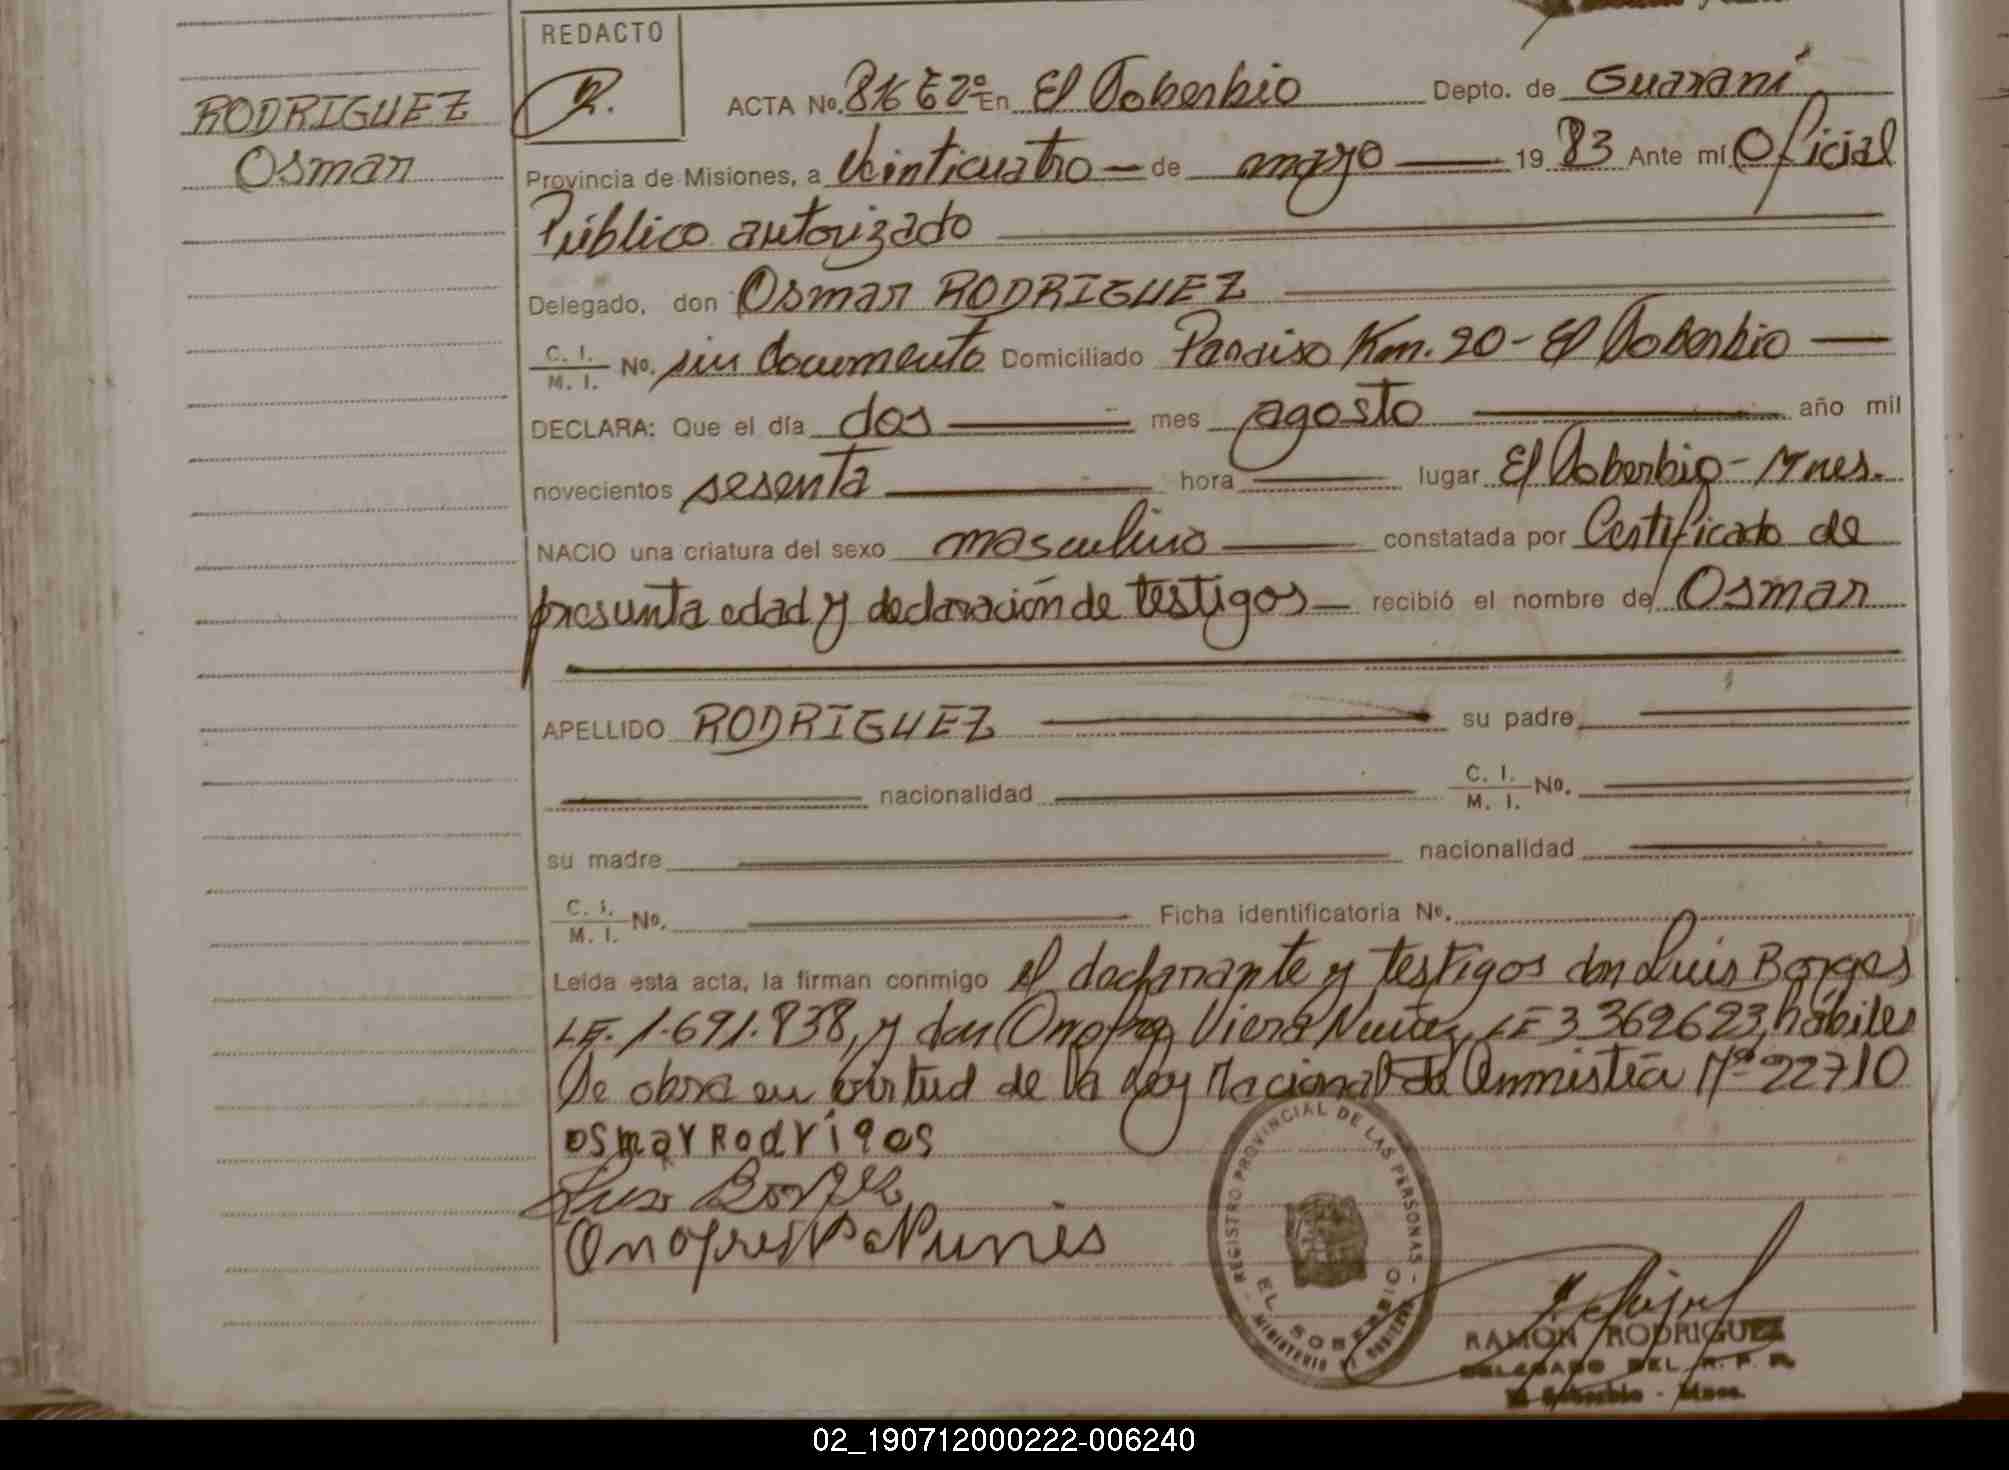 REDACTO
RODRIGUEZ
Osman
R.
ACTA No. 816 E2º En El Soberbio Depto. de Guaraní
Provincia de Misiones, a Veinticuatro — de mayo — 19 83 Ante mí Oficial
Público autorizado
Delegado, don Osman RODRIGUEZ
C. I. / M. I. No. sin documento Domiciliado Paraiso Km. 20 - El Soberbio —
DECLARA: Que el día dos — mes agosto — año mil
novecientos sesenta — hora — lugar El Soberbio - Mnes.
NACIO una criatura del sexo masculino — constatada por Certificado de
presunta edad y declaración de testigos — recibió el nombre de Osman
APELLIDO RODRIGUEZ — su padre —
— nacionalidad — C. I. / M. I. No. —
su madre — nacionalidad —
C. I. / M. I. No. — Ficha identificatoria No.
Leída esta acta, la firman conmigo el declarante y testigos don Luis Borges
LE. 1.691.838, y don Onofre Viera Nuñez, LE 3362623, hábiles
Se obra en virtud de la Ley Nacional de Amnistía Nº 22710
osmar Rodrigos
Luis Borges
Onofre V Nunes
REGISTRO PROVINCIAL DE LAS PERSONAS - MINISTERIO DE GOBIERNO -
EL SOBERBIO
RAMÓN RODRIGUEZ
DELEGADO DEL R. P. P.
El Soberbio - Mnes.
02_190712000222-006240